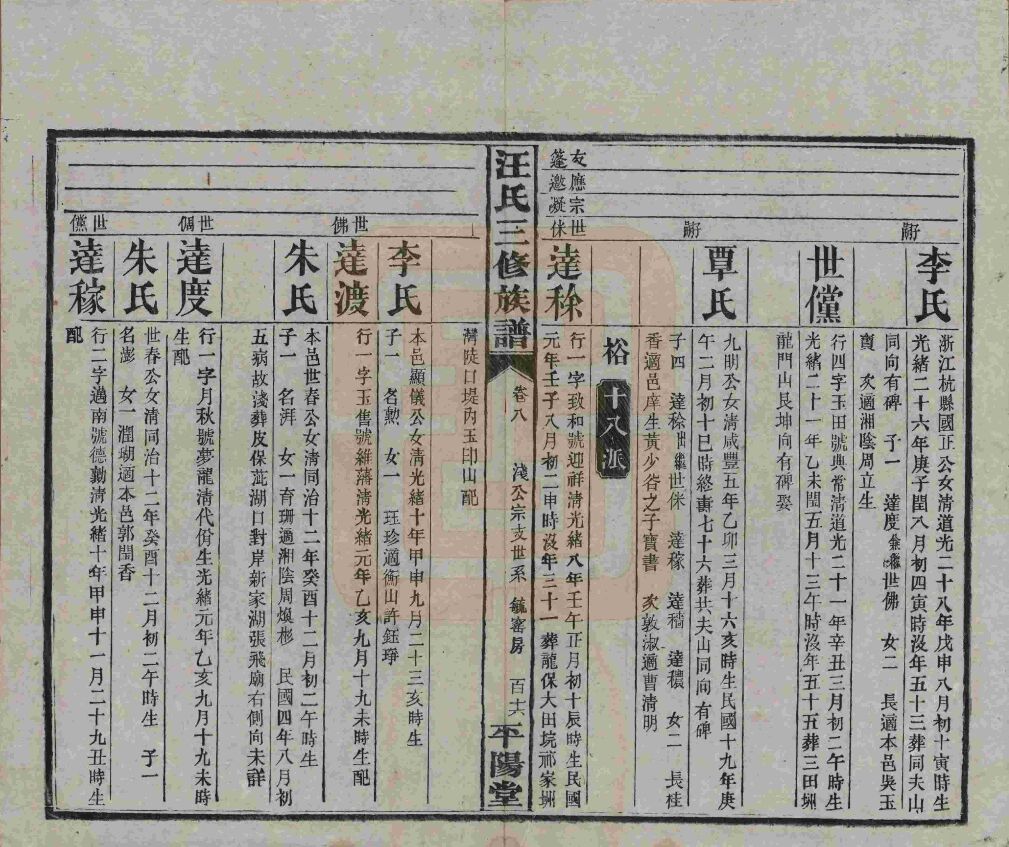 李氏
浙江杭縣國正公女清道光二十八年戊申八月初十寅時生
光緒二十六年庚子閏八月初四寅時沒年五十三葬同夫山
同向有碑 子一 達度兼繼世佛 女二 長適本邑吳玉
賣 次適湘陰周立生
世儻
行四字玉田號興常清道光二十一年辛丑三月初二午時生
光緒二十一年乙未閏五月十三午時沒年五十五葬三田𡊠
龍門山艮坤向有碑娶
覃氏
九明公女清咸豐五年乙卯三月十六亥時生民國十九年庚
午二月初十巳時終壽七十六葬共夫山同向有碑
子四 達稌出繼世俅 達稼 達穡 達穠 女二 長桂
香適邑庠生黃少谷之子寶書 次敦淑適曹清明
裕 十八派
友應宗世
蓬邀凝俅
達稌
行一字致和號迎祥清光緒八年壬午正月初十辰時生民國
元年壬子八月初二申時沒年三十一葬龍保大田垸祁家
汪氏三修族譜
卷八 淺公宗支世系 毓密房 百十六
平陽堂
灣陡口堤內玉印山配
李氏
本邑顯儀公女清光緒十年甲申九月二十三亥時生
子一 名勲 女一 珏珍適衡山許鈺琤
世佛
達渡
行一字玉售號維藩清光緒元年乙亥九月十九未時生配
朱氏
本邑世春公女清同治十二年癸酉十二月初二午時生
子一 名湃 女一育珊適湘陰周煥彬 民國四年八月初
五病故淺葬皮保茈湖口對岸新家湖張飛廟右側向未詳
世倜
達度
行一字月秋號夢龍清代佾生光緒元年乙亥九月十九未時
生配
朱氏
世春公女清同治十二年癸酉十二月初二午時生 子一
名澎 女一潤瑚適本邑郭閏香
世儻
達稼
行二字邁南號德勤清光緒十年甲申十一月二十九丑時生
配